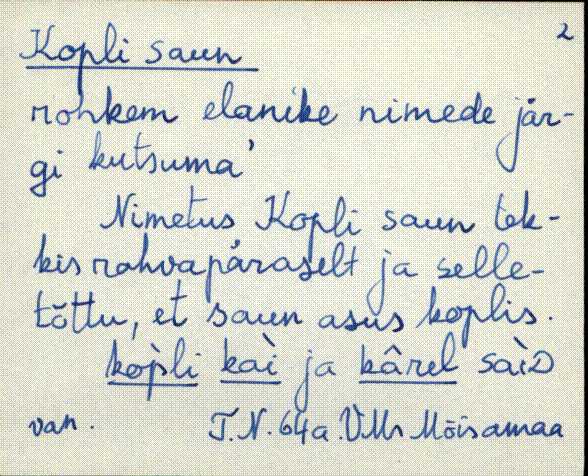 2
Kopli saun
rohkem elanike nimede jär-
gi kutsuma'
Nimetus Kopli saun tek-
kis rahvapäraselt ja selle-
tõttu, et saun asus koplis.
kòpli kaì ja kârel saìD
van. T.N. 64a. VMr Mõisamaa